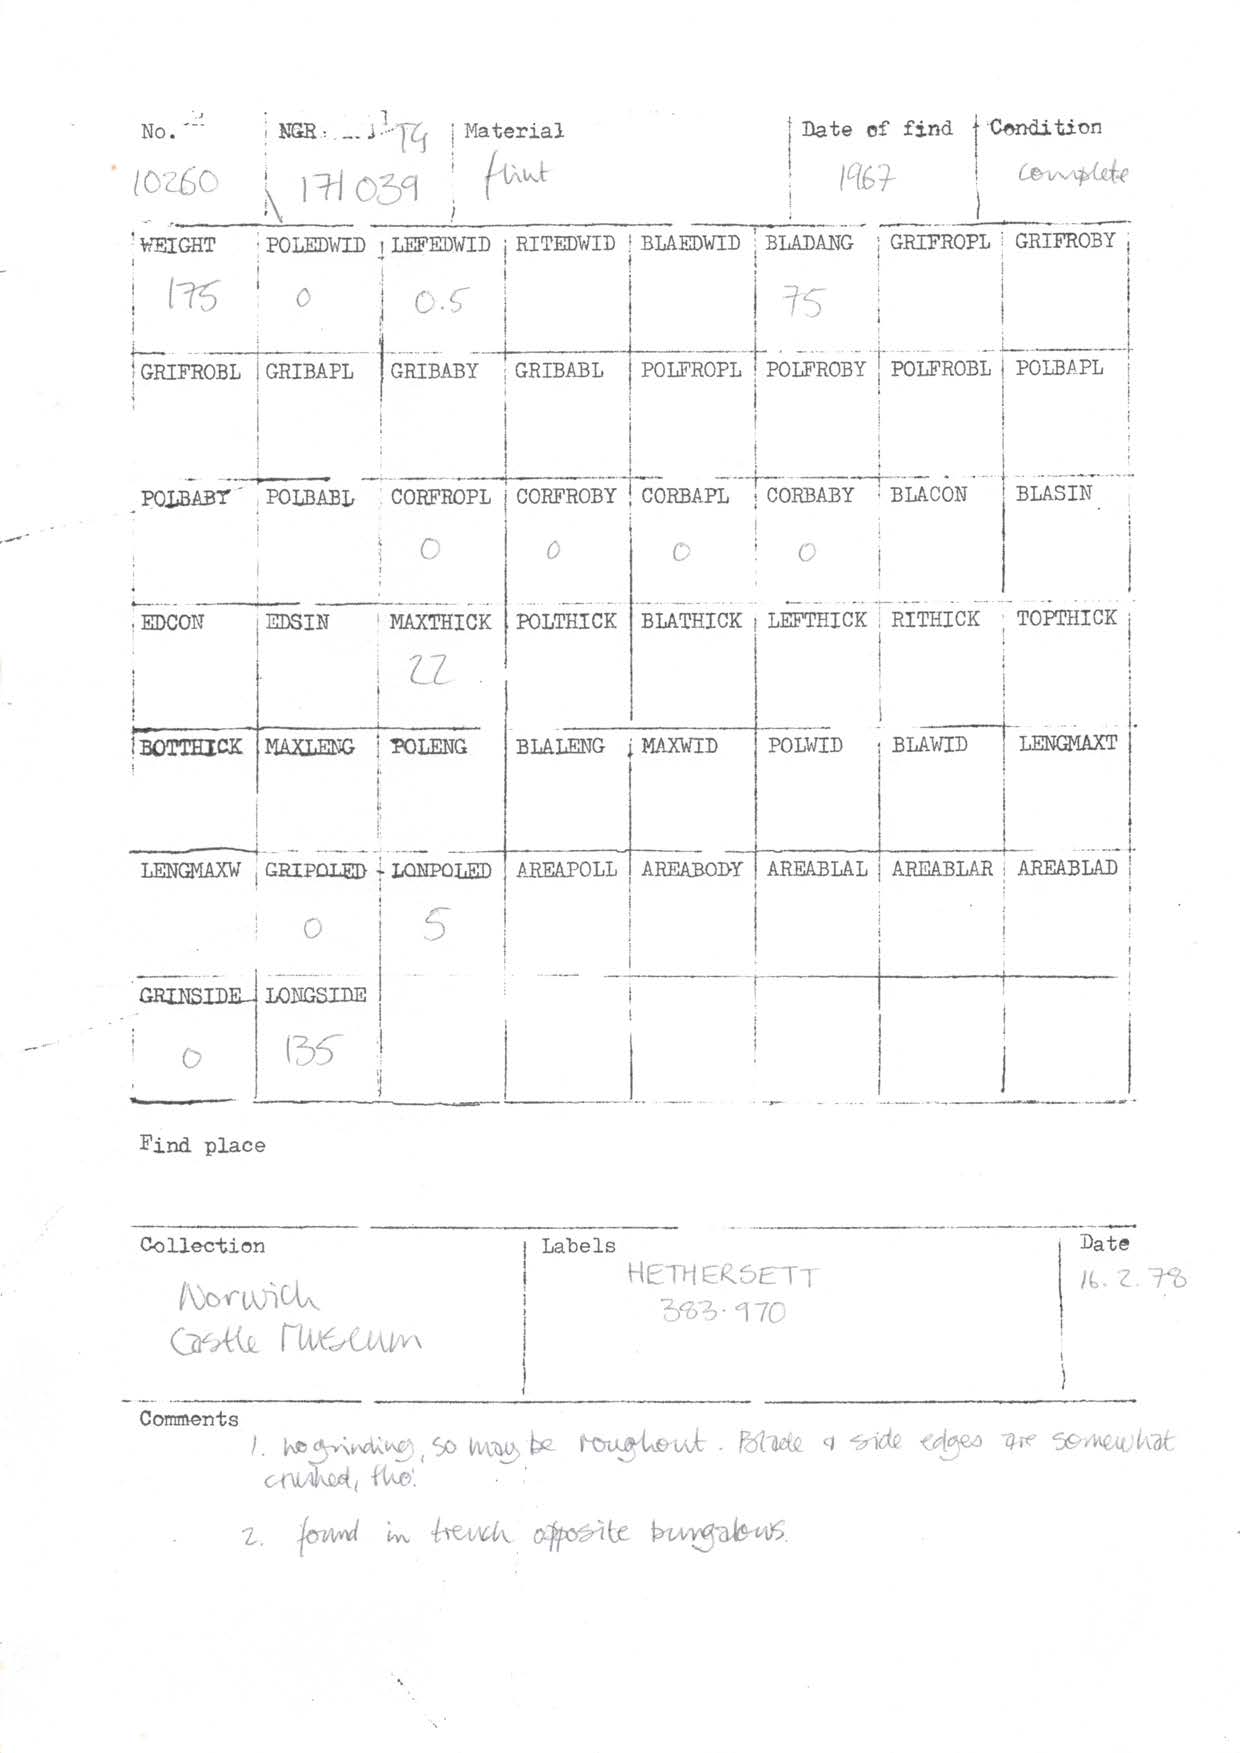 No. NGR: TG Material Date of find Condition
10260 171 039 flint 1967 complete
WEIGHT POLEDWID LEFEDWID RITEDWID BLAEDWID BLADANG GRIFROPL GRIFROBY
175 0 0.5 75
GRIFROBL GRIBAPL GRIBABY GRIBABL POLFROPL POLFROBY POLFROBL POLBAPL
POLBABY POLBABL CORFROPL CORFROBY CORBAPL CORBABY BLACON BLASIN
0 0 0 0
EDCON EDSIN MAXTHICK POLTHICK BLATHICK LEFTHICK RITHICK TOPTHICK
22
BOTTHICK MAXLENG POLENG BLALENG MAXWID POLWID BLAWID LENGMAXT
LENGMAXW GRIPOLED LONPOLED AREAPOLL AREABODY AREABLAL AREABLAR AREABLAD
0 5
GRINSIDE LONGSIDE
0 135
Find place
Collection Labels Date
HETHERSETT 16.2.78
Norwich 383.970
Castle Museum
Comments
1. no grinding, so may be roughout. Blade & side edges are somewhat
crushed, tho'.
2. found in trench opposite bungalows.